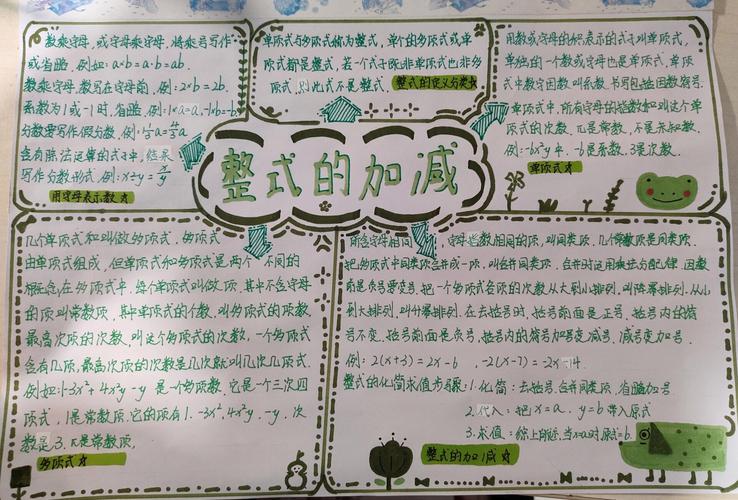 整式的加减
数乘字母,或字母乘字母,将乘号写作
或省略,例如:a×b=a·b=ab.
数乘字母,数写在字母前,例:2×b=2b.
系数为1或-1时,省略,例:1×a=a,-1×b=-b
分数要写作假分数,例:
含有除法运算的式子中,结果
写作分数形式,例:x÷y=x/y
用字母表示数☆
单项式与多项式称为整式,单个的多项式或单
项式都是整式,若一个式子既非单项式也非多
项式,则此式不是整式.
整式的定义分类☆
用数或字母的积表示的式子叫单项式,
单独的一个数或字母也是单项式,单项
式中数字因数叫系数,书写包括因数符号.
单项式中,所有字母的指数和叫这个单
项式的次数,π是常数,不是未知数.
例:-6x²y中,-6是系数,3是次数.
单项式☆
几个单项式和叫做多项式,多项式
由单项式组成,但单项式和多项式是两个不同的
概念,在多项式中,每个单项式叫做项,其中不含字母
的项叫常数项,其中单项式的个数,叫多项式的项数,
最高次项的次数,叫这个多项式的次数,一个多项式
含有几项,最高次项的次数是几次就叫几次几项式.
例如:1-3x²+4x²y-y是一个多项数,它是一个三次四
项式,1是常数项,它的项有1,-3x²,4x²y,-y,次
数是3.π是常数项,
多项式☆
所含字母相同,字母指数相同的项,叫同类项,几个常数项是同类项.
把多项式中同类项合并成一项,叫合并同类项,合并时运用乘法分配律,因数
前是负号要变号,把一个多项式各项的次数从大到小排列,叫降幂排列,从小
到大排列,叫升幂排列,在去括号时,括号前面是正号,括号内的符
号不变,括号前面是负号,括号内的符号加号变减号,减号变加号.
例:2(x+3)=2x-6,-2(x-7)=-2x-14.
整式的化简求值步骤:1.化简:去括号,合并同类项,省略加号
2.代入:把x=a,y=b带入原式
3.求值:综上所述,当x=a时原式=b.
整式的加减☆